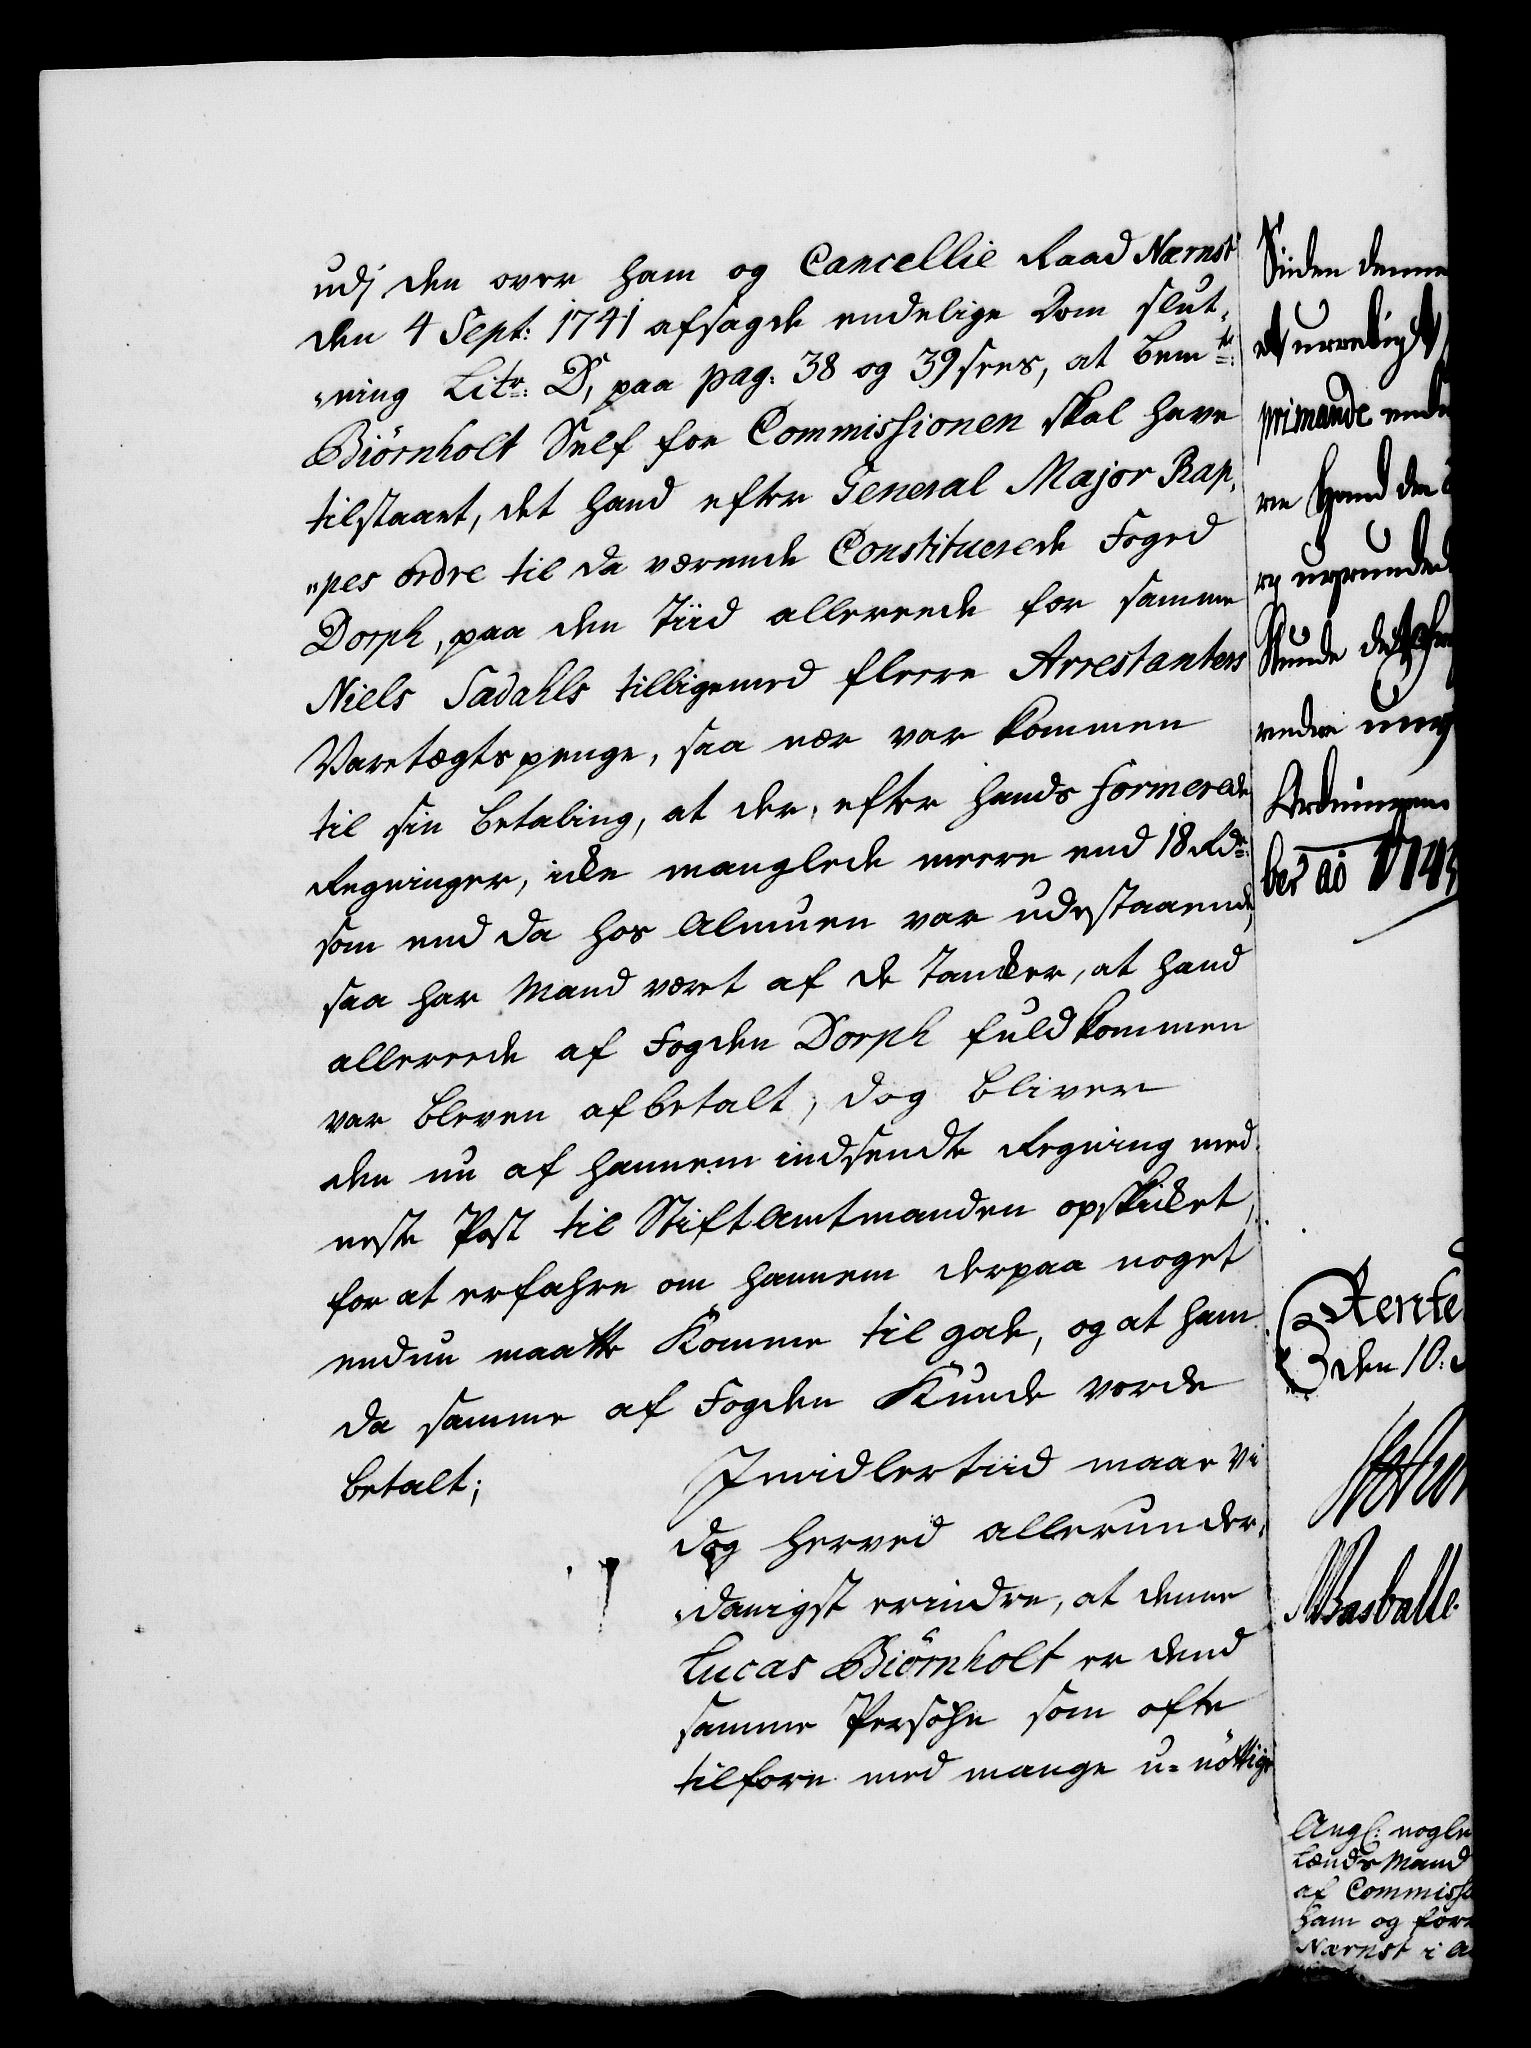 udj den over ham og Cancellie Raad Nærnst
den 4 Sept: 1741 afsagde endelige Dom slut-
„ning Litr: D, paa pag: 38 og 39 sees, at bemte:
Biörnholt Self for Commissionen skal have
tilstaaet, det hand efter General Major Rap-
„pes ordre til da værende Constituerede Foged
Dorph, paa den Tiid allereede for samme
Niels Sadahls tilligemed fleere Arrestanters
Varetægts penge, saa nær var kommen
til sin betaling, at der, efter hands formerede
Regninger, icke manglede meere end 18 Rdr:
som end da hos Almuen var udestaaende,
saa har Mand været af de Tancker, at hand
allereede af Fogden Dorph fuldkommen
var bleven afbetalt, dog bliver
den nu af hannem indsendte Regning med
neste Post til Stiftamtmanden opskicket,
for at erfahre om hannem derpaa noget
endnu maatte Komme til gode, og at ham
da samme af Fogden Kunde vorde
betalt;
Imidlertiid maae Vi
dog herved allerunder-
„danigst erindre, at denne
Lucas Biörnholt er dend
samme Persohn som ofte
tilforn med mange u-nöttige
Siiden denne
primande
ree Haand den
Kunde
ber ao 174
Rente
den 10:
Basballe
Angl: nogle
Lænds Mand
af Commissi
ham og for
Nærnst i A